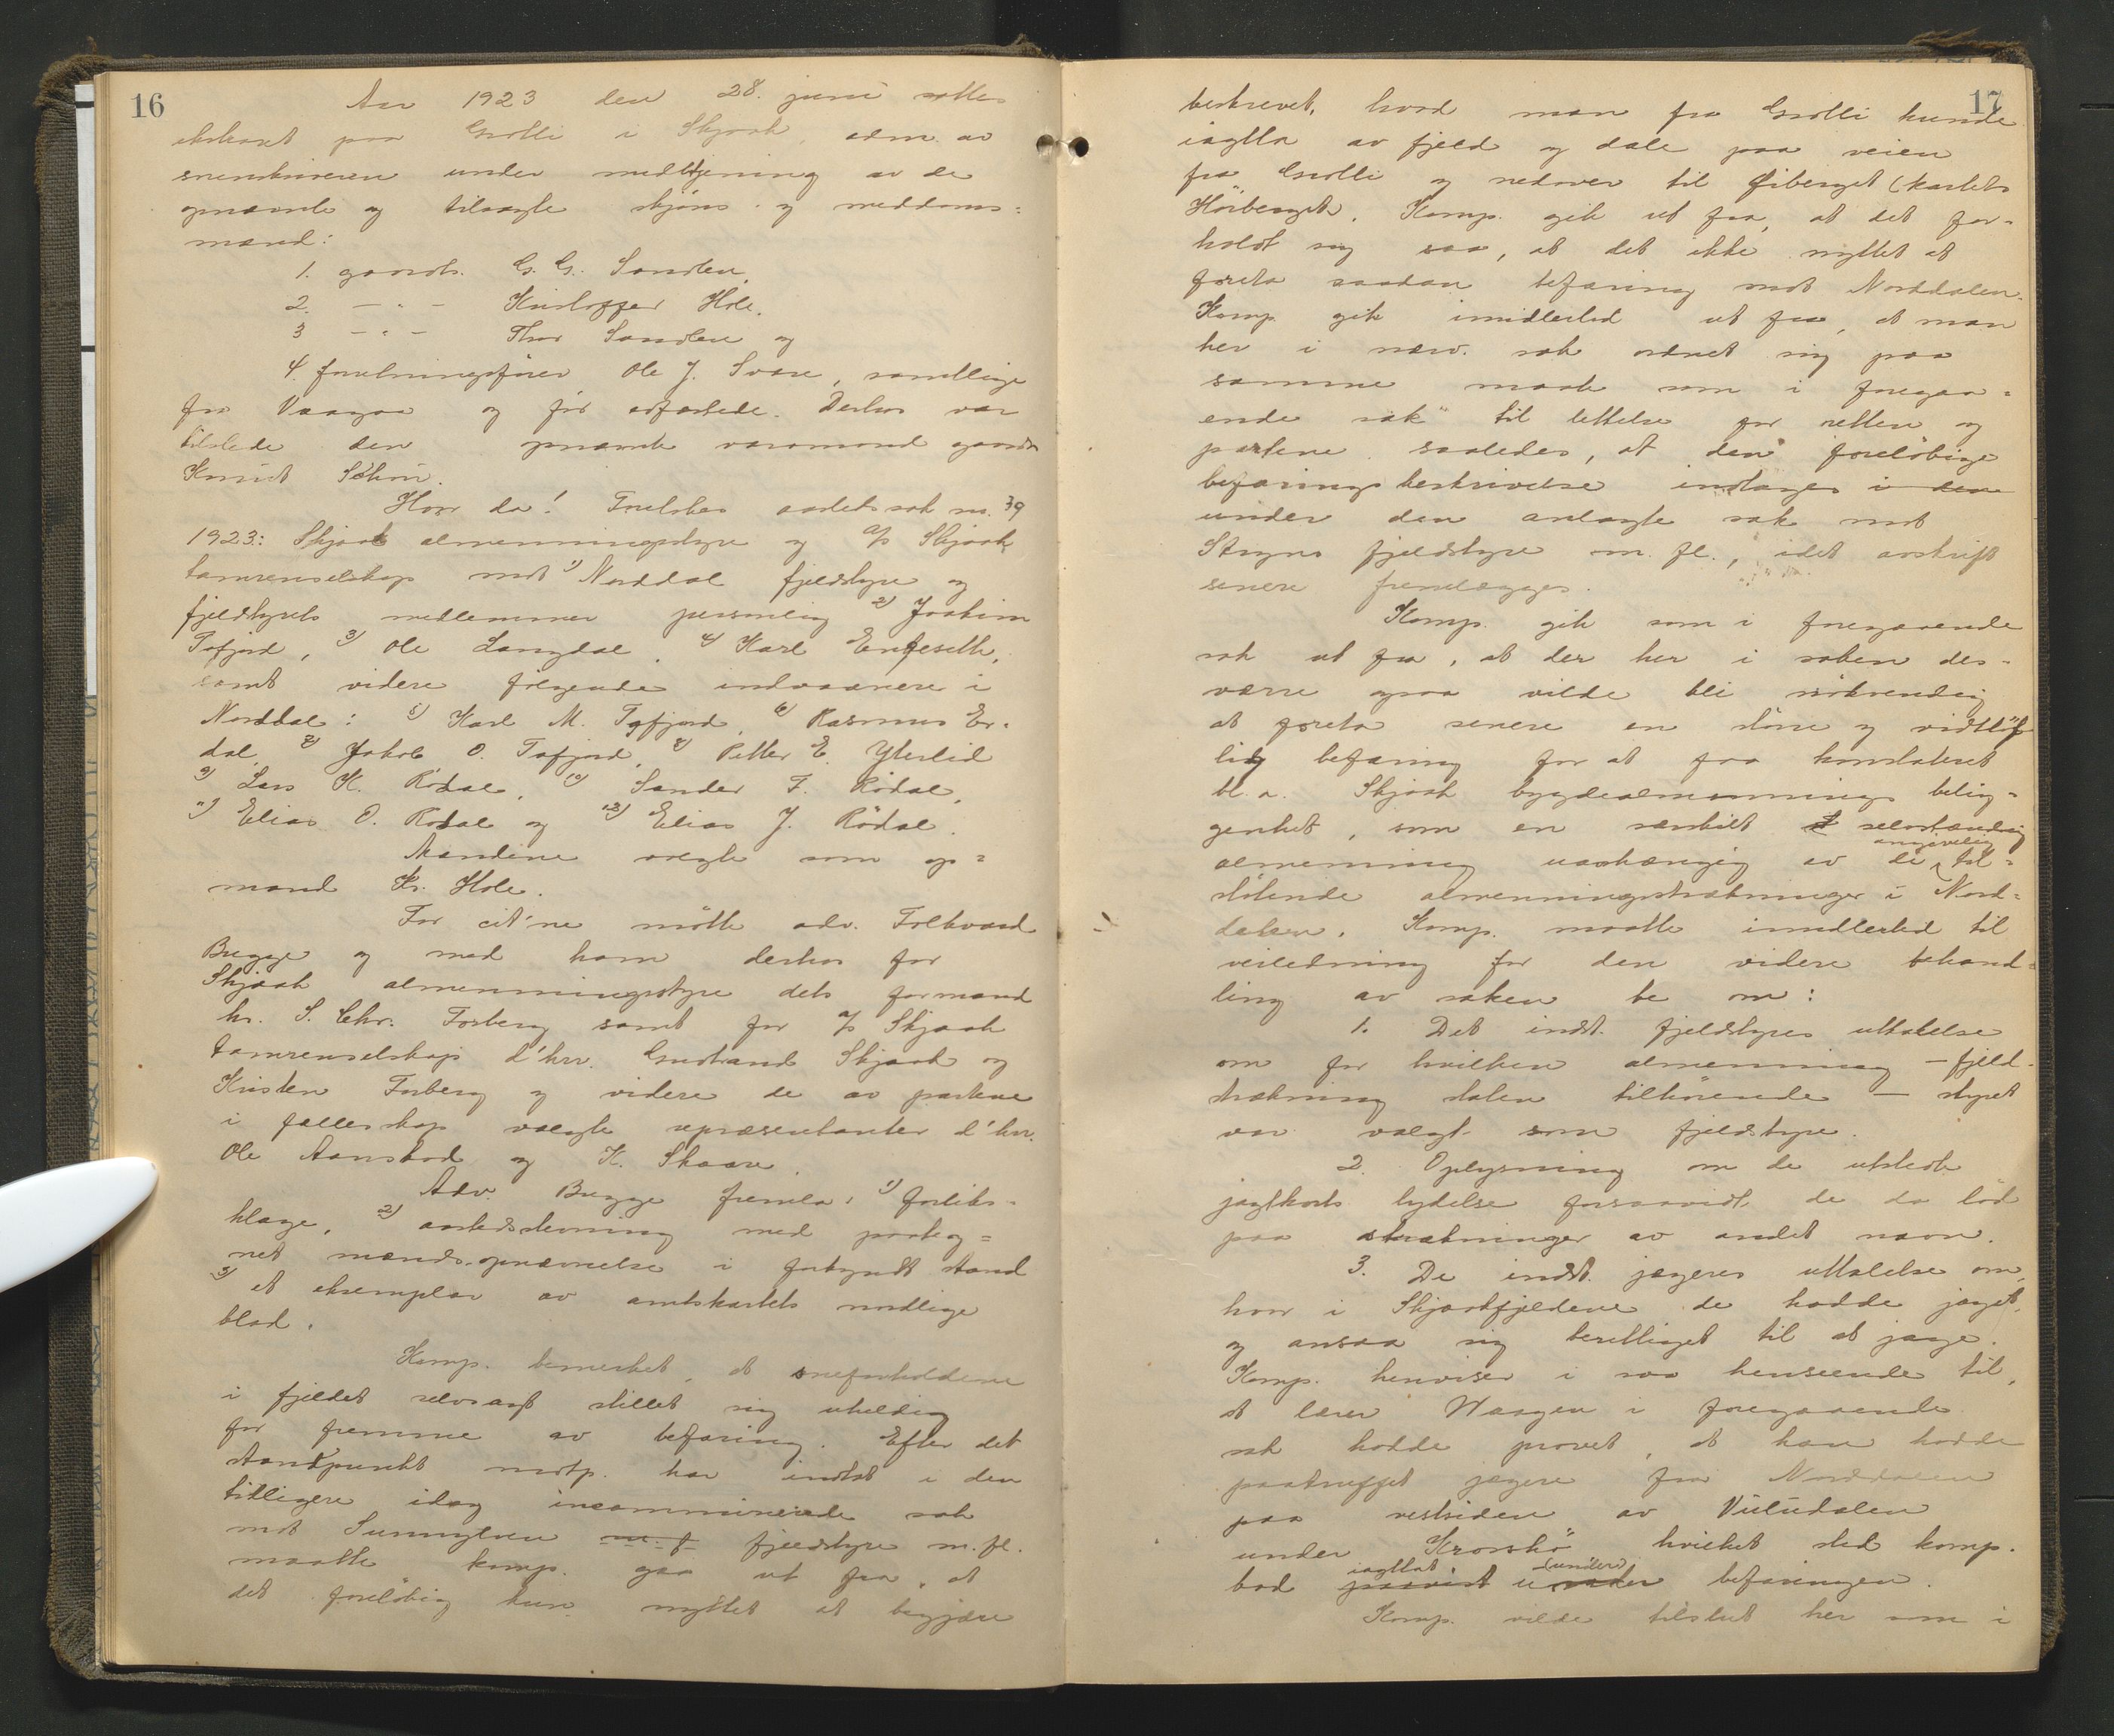 16
Aar 1923 den 28. juni sattes
ekstraret paa Grotli i Skjaak, adm. av
sorenskriveren under medbetjening av de
opnævnte og tilsagte skjöns- og meddoms=
mænd:
1. gaardb. G. G. Sandlen,
2. — " — Kristoffer Hole,
3 — " — Thor Sandlen og
4. forretningsfører Ole J. Svare, samtlige
fra Vaagaa og før edfæstede. Derhos var
tilstede den opnævnte varamand gaardb
Knut Schön.
Hvor da! Foretokes aastedssak nr. 39
1923: Skjaak almenningsstyre og A/S Skjaak
tamrenselskap mot 1) Norddal fjeldstyre og
fjeldstyrets medlemmer personlig 2) Joakim
Tafjord, 3) Ole Langdal, 4) Karl Engesetth,
samt videre følgende indvaanere i
Norddal: 5) Karl M. Tafjord, 6) Rasmus Er-
dal, 7) Jakob O. Tafjord, 8) Petter E. Ytterlid
9) Lars K. Rødal, 10) Sander F. Rødal,
11) Elias O. Rødal og 12) Elias J. Rödal.
Mændene valgte som op=
mand Kr. Hole.
For cit'ne mötte adv. Folkvard
Bugge og med ham derhos for
Skjaak almenningsstyre dets formand
hr. S. Chr. Forberg samt for A/S Skjaak
tamrenselskap d'hrr. Gudbrand Skjaak og
Kristen Forberg og videre de av partene
i fællesskap valgte repræsentanter d'hrr.
Ole Aanstad og K. Skaare.
Adv. Bugge fremla: 1) forliks-
klage, 2) aastedsstevning med paateg=
net mændsopnævnelse i forkyndt stand
3) et eksemplar av amtskartets nordlige
blad.
Komp. bemerket, at sneforholdene
i fjeldet selvsagt stillet sig uheldig
for fremme av befaring. Efter det
standpunkt motp. har indtat i den
tidligere idag incaminerede sak
mot Sunnylven m. f fjeldstyre m.fl.
maatte komp. gaa ut fra, at
det foreløbig kun nyttet at begjære
17
beskrevet, hvad man fra Grotli kunde
iagtta av fjeld og dale paa veien
fra Grotli og nedover til Øiberget (kartets
Høibergets). Komp. gik ut fra, at det for-
holdt sig saa, at det ikke nyttet at
foreta saadan befaring mot Norddalen.
Komp. gik imidlertid ut fra, at man
her i nærv. sak ordnet sig paa
samme maate som i foregaa=
ende sak til lettelse for retten og
partene saaledes, at den foreløbige
befaringsbeskrivelse indtages i den
under den anlagte sak mot
Stryns fjeldstyre m. fl., idet avskrift
senere fremlægges.
Komp. gik som i foregaaende
sak ut fra, at der her i saken des-
værre ogsaa vilde bli nödvendig
at foreta senere en større og vidtløf
tig befaring for at faa konstateret
bl.a. Skjaak bygdealmennings belig=
genhet, som en særskilt selvstændig
almenning uavhængig av de angivelig til=
støtende almenningsstrækninger i Nord=
dalen. Komp. maatte imidlertid til
veiledning for den videre behand=
ling av saken be om:
1. Det indst. fjeldstyres uttalelse
om for hvilken almenning — fjeld-
strækning staten tilhørende — styret
var valgt som fjeldstyre.
2. Oplysning om de utstedte
jagtkorts lydelse forsaavidt de da lød
paa strækninger av andet navn.
3. De indst. jægeres uttalelse om,
hvor i Skjaakfjeldene de hadde jaget,
og ansaa sig berettiget til at jage.
Komp. henviser i saa henseende til,
at lærer Waagen i foregaaende
sak hadde provet, at han hadde
paatruffet jægere fra Norddalen
paa vestsiden av Vuludalen
under Kroshö hvilket sted komp.
bad iagttat paavist under (under) befaringen.
Komp. vilde tilslut her som i